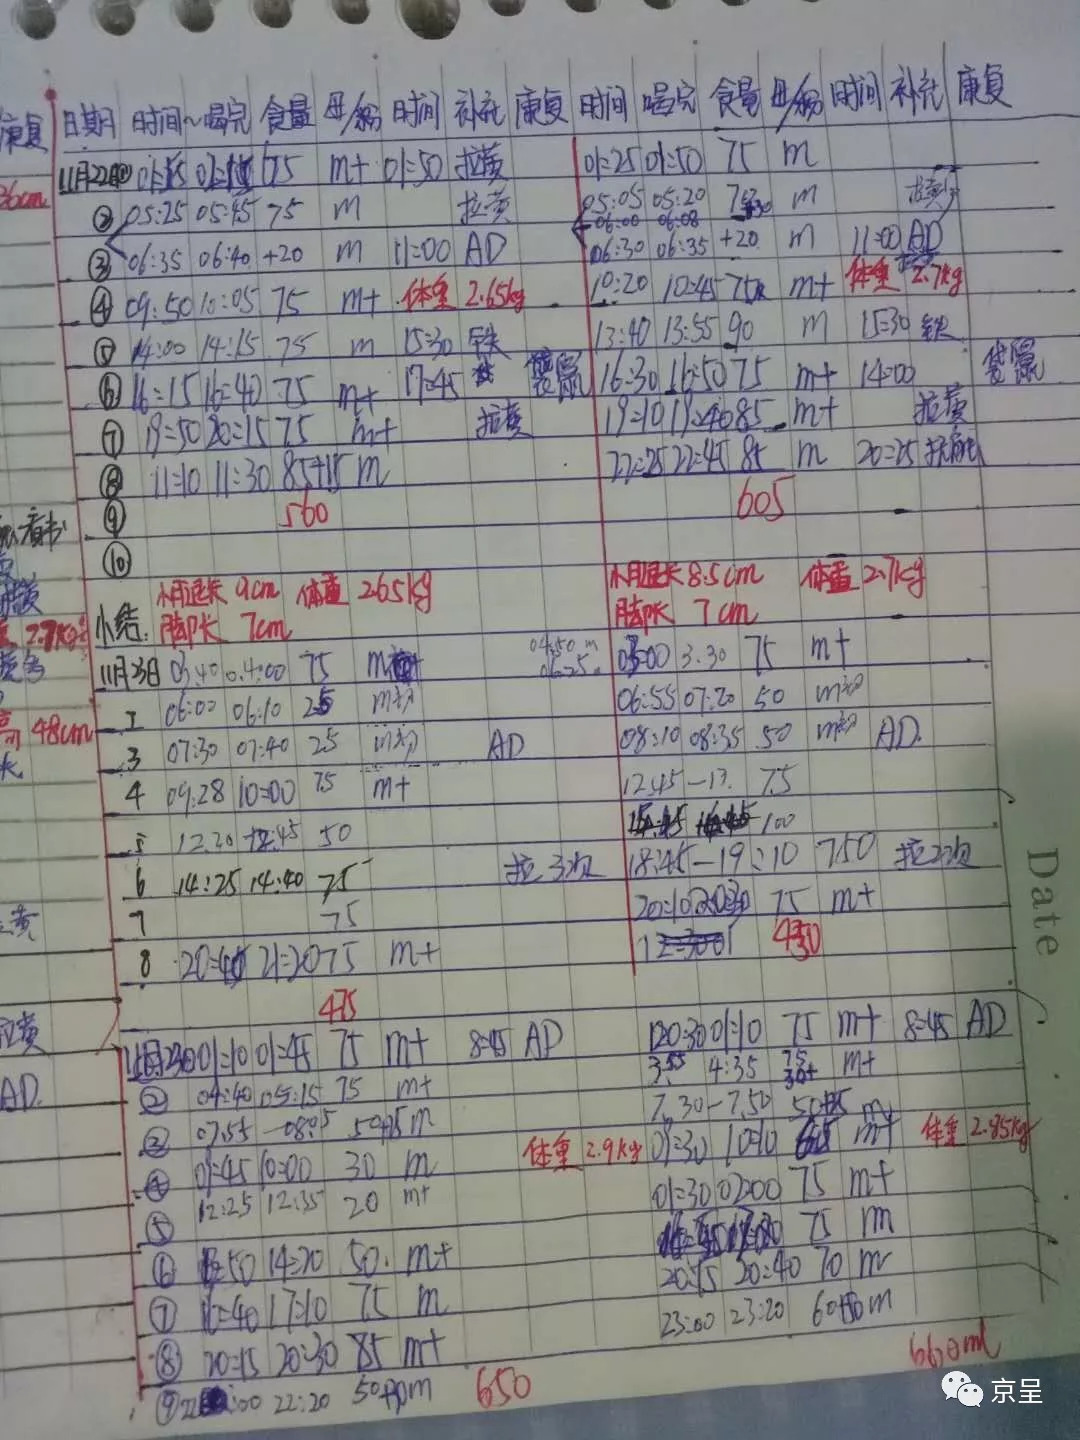 康复 日期 时间~喝完 食量 母/奶 时间 补充 康复 时间 喝完 食量 母/奶 时间 补充 康复
36cm 11月22日① 75 m+ 01:50 拉黄 01:25 01:50 75 m
② 05:25 05:45 75 m 拉黄 05:05 05:20 m 拉黄
06:00 06:08
③ 06:35 06:40 +20 m 11:00 AD 06:30 06:35 +20 m 11:00 AD
④ 09:50 10:05 75 m+ 体重 2.65kg 10:20 10:45 75 m+ 体重 2.7kg
⑤ 14:00 14:15 75 m 15:30 铁 13:40 13:55 90 m 15:30 铁
⑥ 16:15 16:40 75 m+ 17:45 袋鼠 16:30 16:50 75 m+ 14:00 袋鼠
⑦ 19:50 20:15 75 m+ 拉黄 19:10 19:40 85 m+ 拉黄
⑧ 11:10 11:30 85+15 m 22:25 22:45 85 m 20:25
⑨ 560 605
⑩
小结: 小腿长 9cm 体重 2.65kg 小腿长 8.5cm 体重 2.7kg
脚长 7cm 脚长 7cm
11月23日 03:40 04:00 75 m 04:50 m 06:25 03:00 3:30 75 m+
06:00 06:10 25 m初 06:55 07:20 50 m初
3 07:30 07:40 25 m初 AD 08:10 08:35 50 m初 AD.
48cm
4 09:28 10:00 75 m+ 12:45-13. 75
5 12:20 12:45 50 100
6 14:25 14:40 75 拉3次 18:45-19:10 750 拉2次
7 75 20:10 20:30 75 m+
8 20:40 21:20 75 m+ 430
475
01:10 01:45 75 m+ 8:45 AD 120:30 01:10 75 m+ 8:45 AD
② 04:40 05:15 75 m+ 3:55 4:35 75 30+ m+
AD.
③ 07:55-08:05 50+25 m 7.30-7.50 m
④ 01:45 10:00 30 m 体重 2.9kg 01:30 10:10 65 m+ 体重 2.85kg
⑤ 12:25 12:35 20 m+ 01:30 02:00 75 m+
⑥ :50 14:20 50. m+ 75 m
⑦ 16:40 17:10 75 m 20:15 20:40 70 m
⑧ 20:15 20:30 85 m+ 23:00 23:20 m
⑨ 22:20 650 660ml
Date
京呈